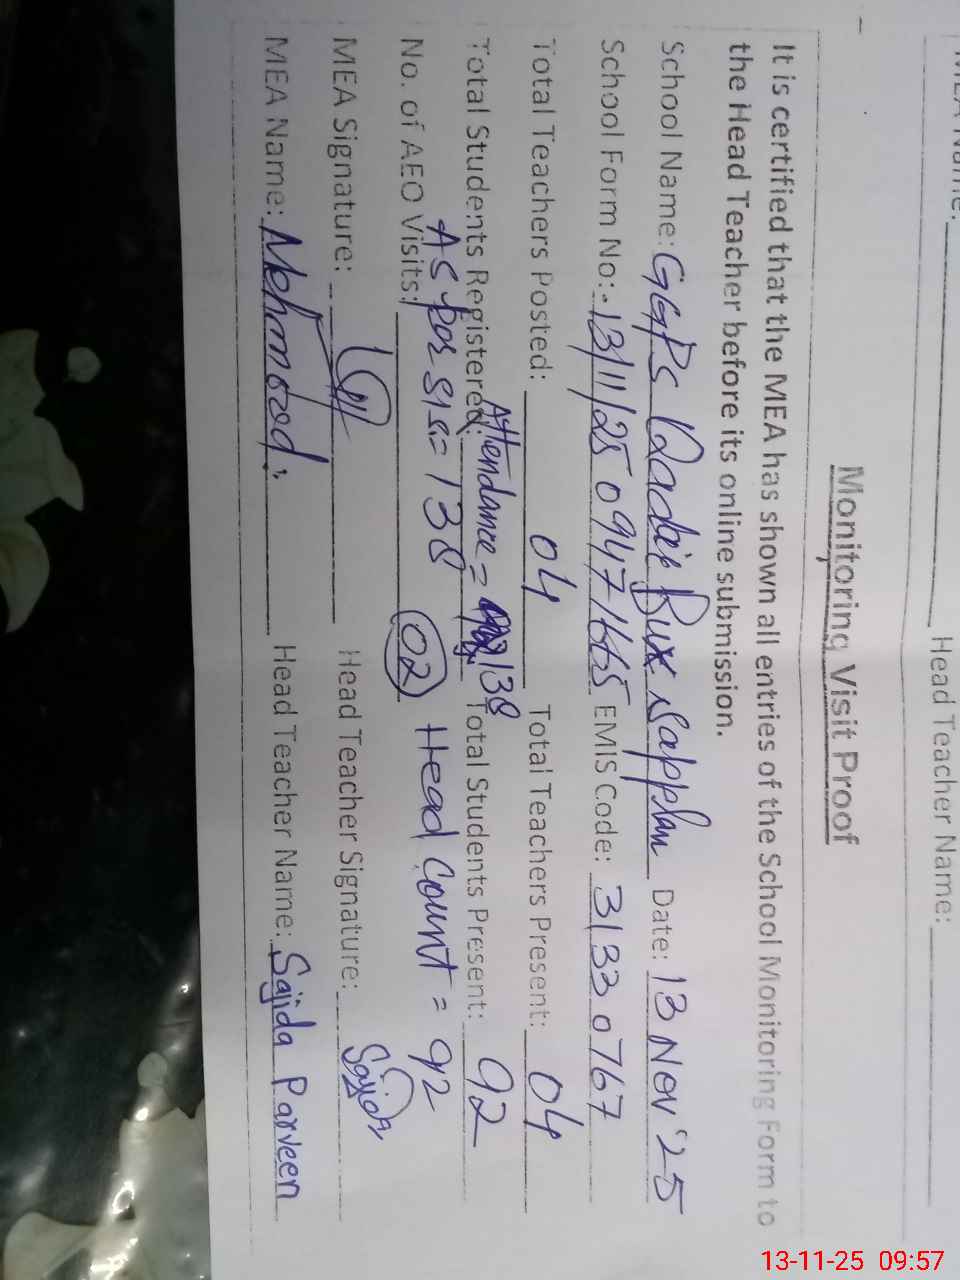 Head Teacher Name:
Monitoring Visit Proof
It is certified that the MEA has shown all entries of the School Monitoring Form to
the Head Teacher before its online submission.
School Name: GGPS Qadir Bux Sapplan Date: 13 Nov '25
School Form No:- 13/11/25 0947/665 EMIS Code: 31330767
Total Teachers Posted: 04 Total Teachers Present: 04
Attendance = 138
Total Students Registered: Total Students Present: 92
As per SIS = 138
No. of AEO Visits: 02 Head Count = 92
MEA Signature: Head Teacher Signature: Sajida
MEA Name: Mehmood. Head Teacher Name: Sajida Parveen
13-11-25 09:57